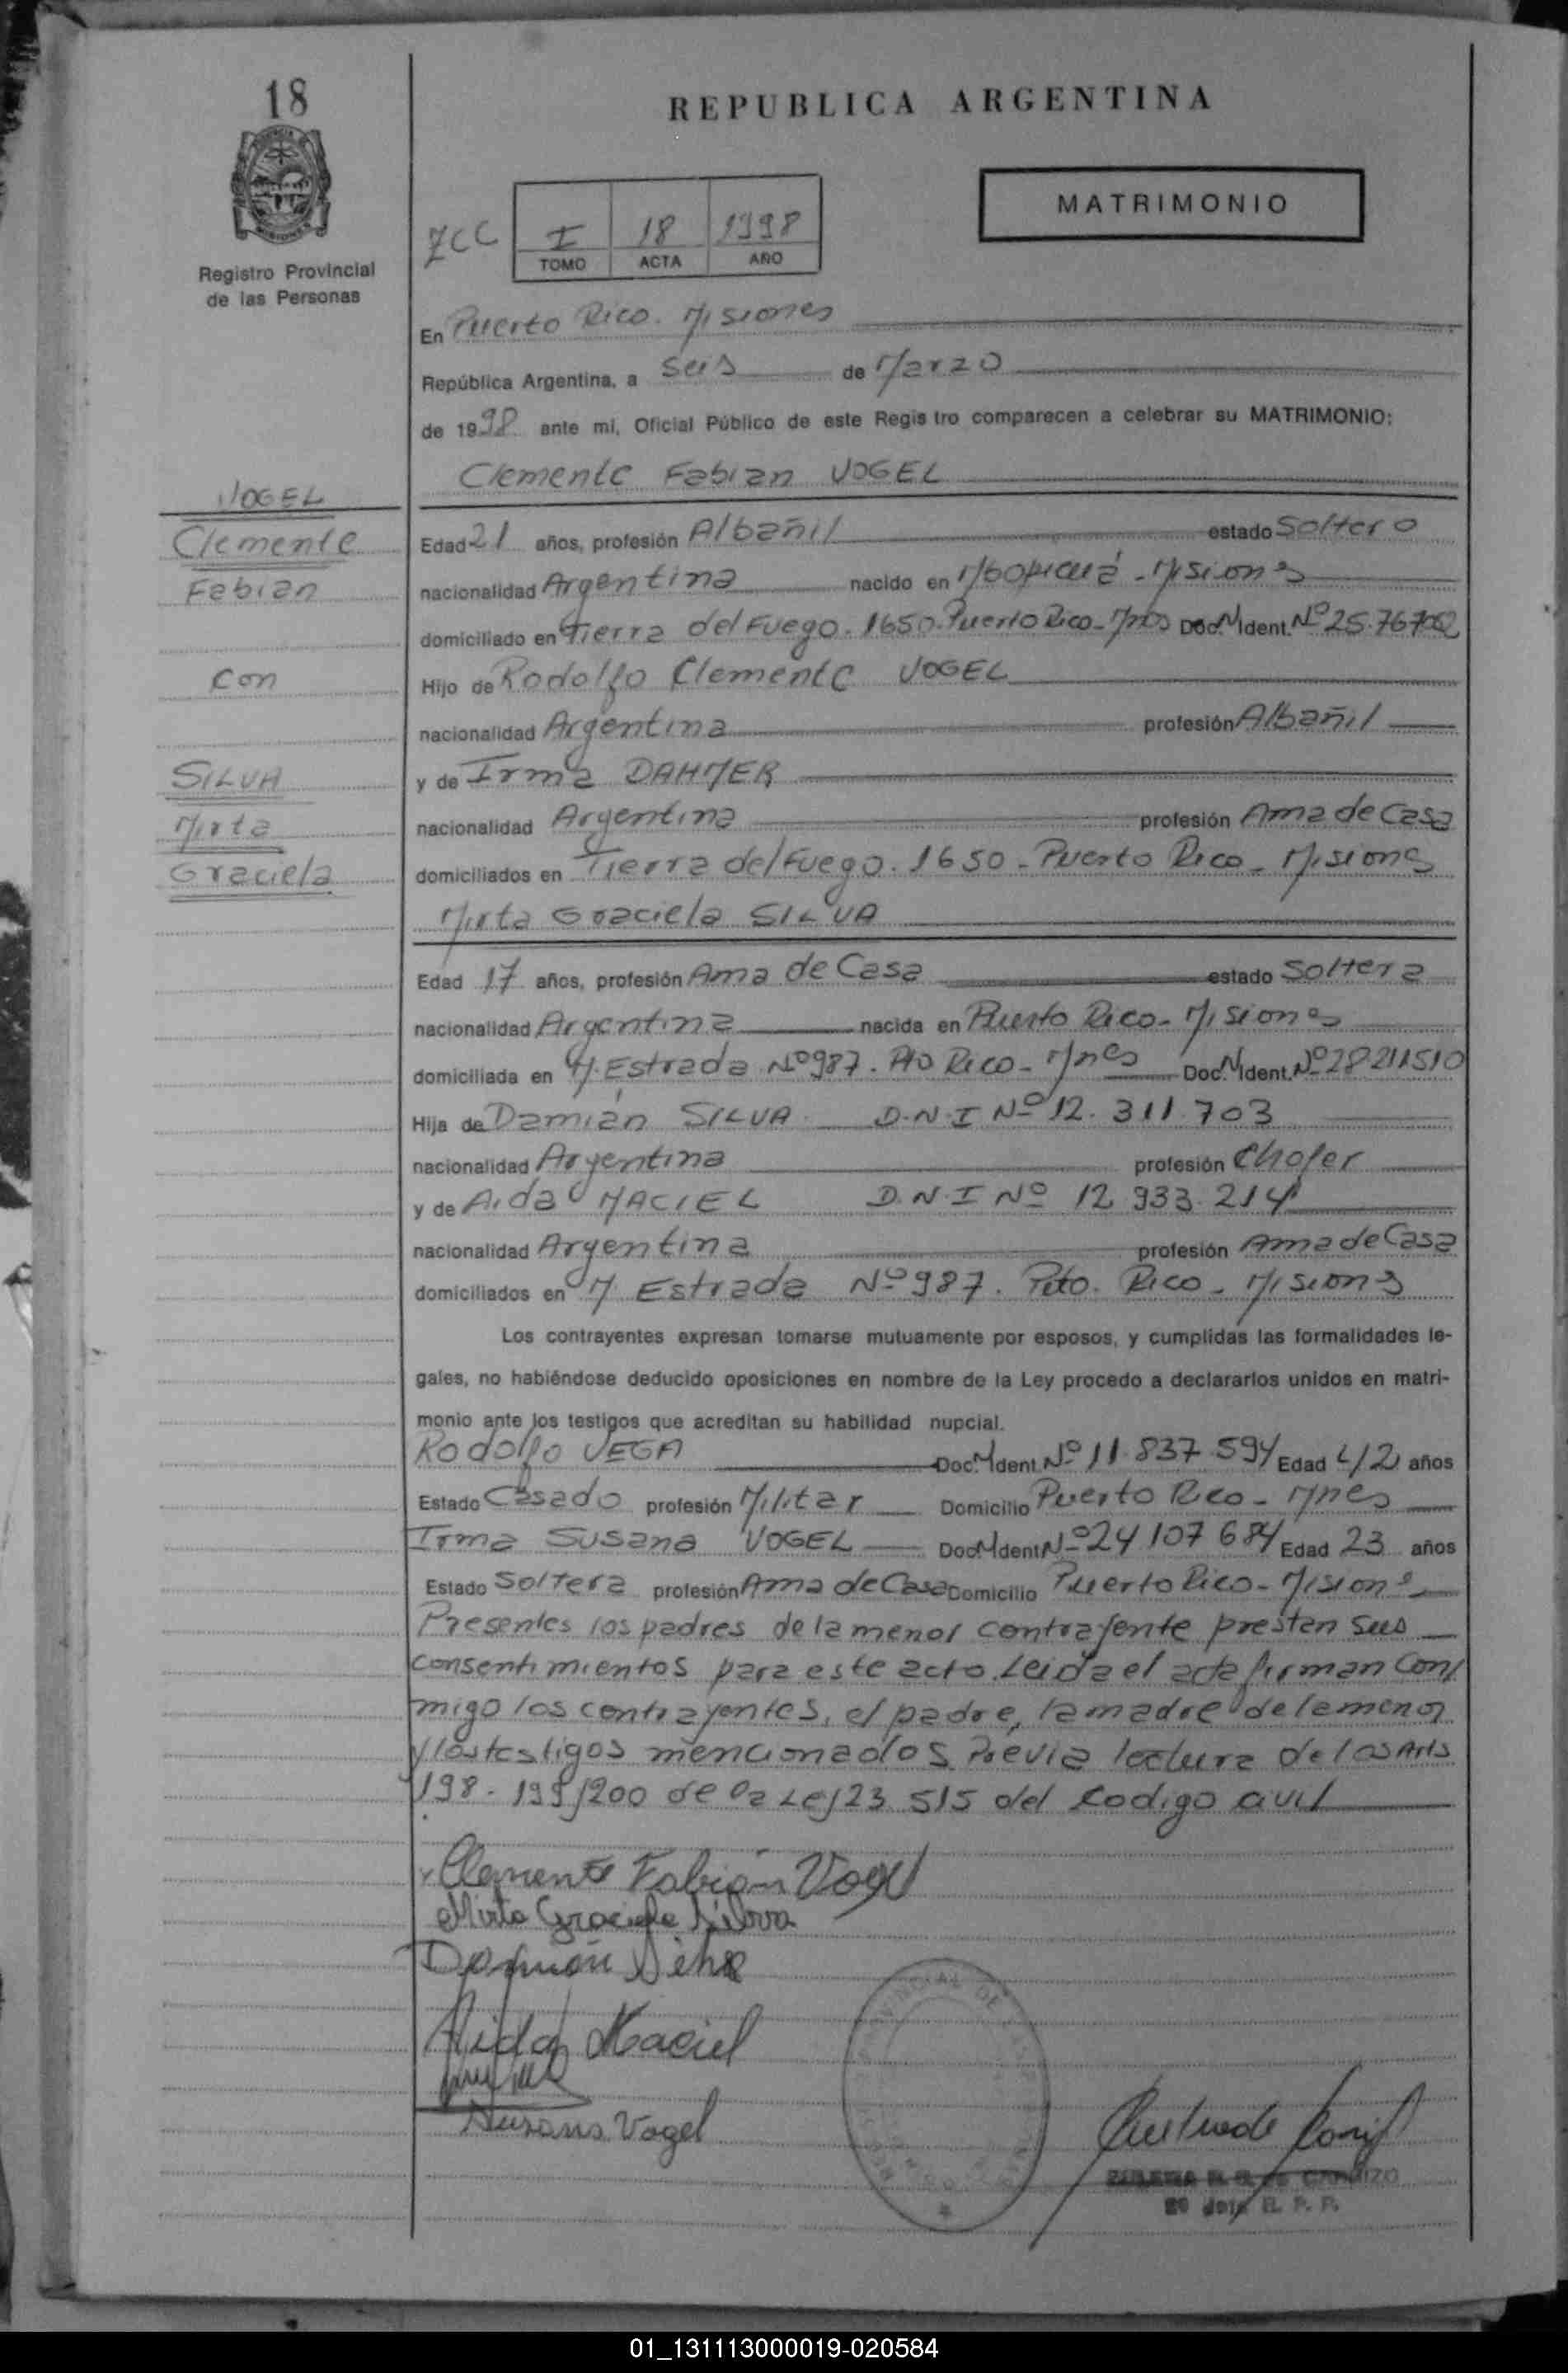 18
REPUBLICA ARGENTINA
MATRIMONIO
Registro Provincial
de las Personas
I 18 1998
TOMO ACTA AÑO
En Puerto Rico. Misiones
República Argentina, a seis de Marzo
de 1998 ante mi, Oficial Público de este Regis tro comparecen a celebrar su MATRIMONIO:
Clemente Fabian VOGEL
VOGEL
Clemente
Fabian
con
SILVA
Mirta
Graciela
Edad 21 años, profesión Albañil estado Soltero
nacionalidad Argentina nacido en Misiones
domiciliado en Tierra del Fuego. 1650. Puerto Rico - Mnes Doc. N. Ident. Nº 25.76
Hijo de Rodolfo Clemente VOGEL
nacionalidad Argentina profesión Albañil
y de Irma DAHMER
nacionalidad Argentina profesión Ama de Casa
domiciliados en Tierra del Fuego. 1650 - Puerto Rico - Misiones
Mirta Graciela SILVA
Edad 17 años, profesión Ama de Casa estado Soltera
nacionalidad Argentina nacida en Puerto Rico - Misiones
domiciliada en M. Estrada Nº 987. Pto Rico - Mnes Doc. N. Ident. Nº 28211510
Hija de Damián SILVA D.N.I Nº 12.311.703
nacionalidad Argentina profesión Chofer
y de Aida MACIEL D.N.I Nº 12 933.214
nacionalidad Argentina profesión Ama de Casa
domiciliados en M. Estrada Nº 987. Pto. Rico - Misiones
Los contrayentes expresan tomarse mutuamente por esposos, y cumplidas las formalidades le-
gales, no habiéndose deducido oposiciones en nombre de la Ley procedo a declararlos unidos en matri-
monio ante los testigos que acreditan su habilidad nupcial.
Rodolfo VEGA Doc. N. Ident. Nº 11.837.594 Edad 42 años
Estado Casado profesión Militar Domicilio Puerto Rico - Mnes
Irma Susana VOGEL Doc. N. Ident. Nº 24 107 684 Edad 23 años
Estado Soltera profesión Ama de Casa Domicilio Puerto Rico - Misiones
Presentes los padres de la menor contrayente prestan sus
consentimientos para este acto. Leida el acta firman con/
migo los contrayentes, el padre, la madre de la menor
y los testigos mencionados Previa lectura de los Arts
198 - 199/200 de la Ley 23.515 del Codigo civil
Clemente Fabián Vogel
Mirta Graciela Silva
Damián Silva
Aida Maciel
Susana Vogel
01_131113000019-020584